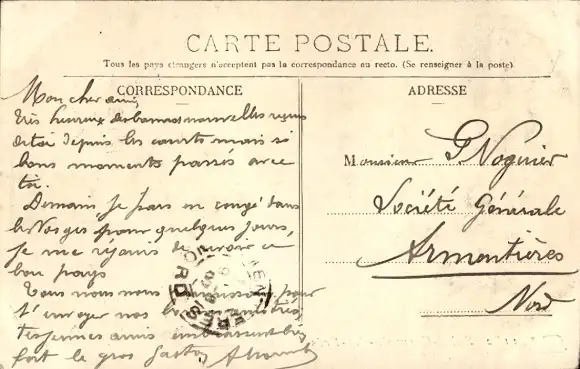 CARTE POSTALE.
Tous les pays étrangers n'acceptent pas la correspondance au recto. (Se renseigner à la poste)
CORRESPONDANCE
Mon cher ami,
Très heureux des bonnes nouvelles reçues
de toi depuis les courts mais si
bons moments passés avec
toi.
Demain, je pars en congé dans
les Vosges pour quelques jours,
je me réjouis de revoir ce
bon pays
Tous nous nous pour
t'envoyer nos
amis
fort le gros Gaston
ADRESSE
Monsieur G Noguier
Société Générale
Armentières
Nord
NORD